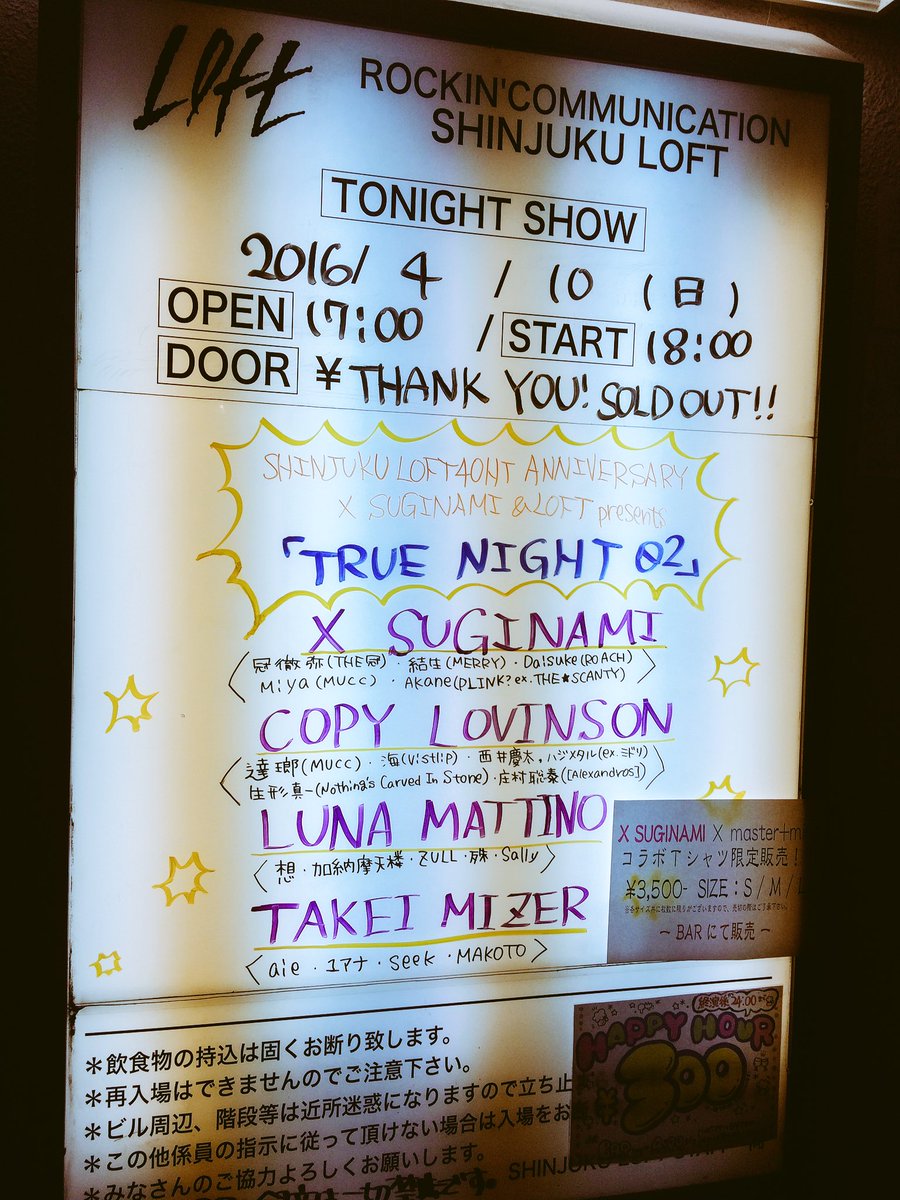 Loft
ROCKIN'COMMUNICATION
SHINJUKU LOFT
TONIGHT SHOW
2016/ 4 / 10 (日)
OPEN 17:00 / START 18:00
DOOR ¥ THANK YOU! SOLD OUT!!
SHINJUKU LOFT40HT ANNIVERSARY
X SUGINAMI &LOFT presents
「TRUE NIGHT 02」
X SUGINAMI
〈冠徹弥(THE冠)・結生(MERRY)・Daisuke(ROACH)
Miya(MUCC)・Akane(PLINK? ex.THE★SCANTY)〉
COPY LOVINSON
〈達瑯(MUCC)・海(vistlip)・西井慶太,ハジメタル(ex.ミドリ)
生形真一(Nothing's Carved In Stone)・庄村聡泰([Alexandros])〉
LUNA MATTINO
〈想・加納摩天楼・ZULL・殊・Sally〉
TAKEI MIZER
〈aie・ユアナ・seek・MAKOTO〉
X SUGINAMI X master+m
コラボTシャツ限定販売!
¥3,500- SIZE:S / M /
※各サイズ共に枚数に限りがございますので、売切の際はご了承下さい。
~ BARにて販売 ~
*飲食物の持込は固くお断り致します。
*再入場はできませんのでご注意下さい。
*ビル周辺、階段等は近所迷惑になりますので立ち止
*この他係員の指示に従って頂けない場合は入場をお
*みなさんのご協力よろしくお願いします。
SHINJUKU
終演後 24:00
HAPPY HOUR
¥300